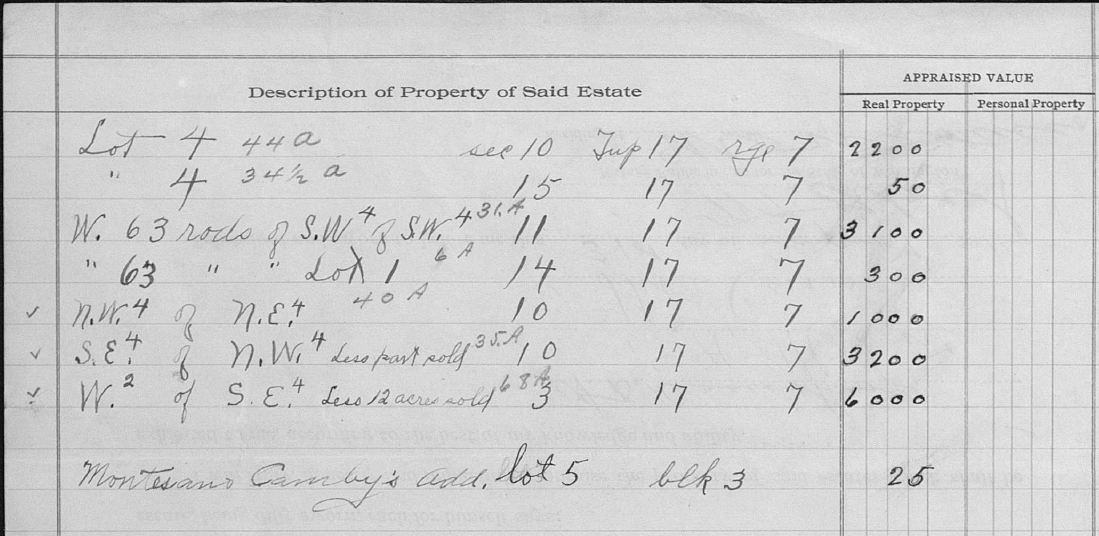 APPRAISED VALUE
Description of Property of Said Estate
Real Property Personal Property
Lot 4 44a sec 10 Twp 17 rge 7 2200
" 4 34½ a 15 17 7 50
W. 63 rods of S.W⁴ of S.W.⁴ 31.A 11 17 7 3100
" 63 " " Lot 1 6 A 14 17 7 300
N.W.⁴ of N.E.⁴ 40 A 10 17 7 1000
S.E.⁴ of N.W.⁴ Less part sold 35.A 10 17 7 3200
W.² of S.E.⁴ Less 12 acres sold 68A 3 17 7 6000
Montesano Camby's add. lot 5 blk 3 25